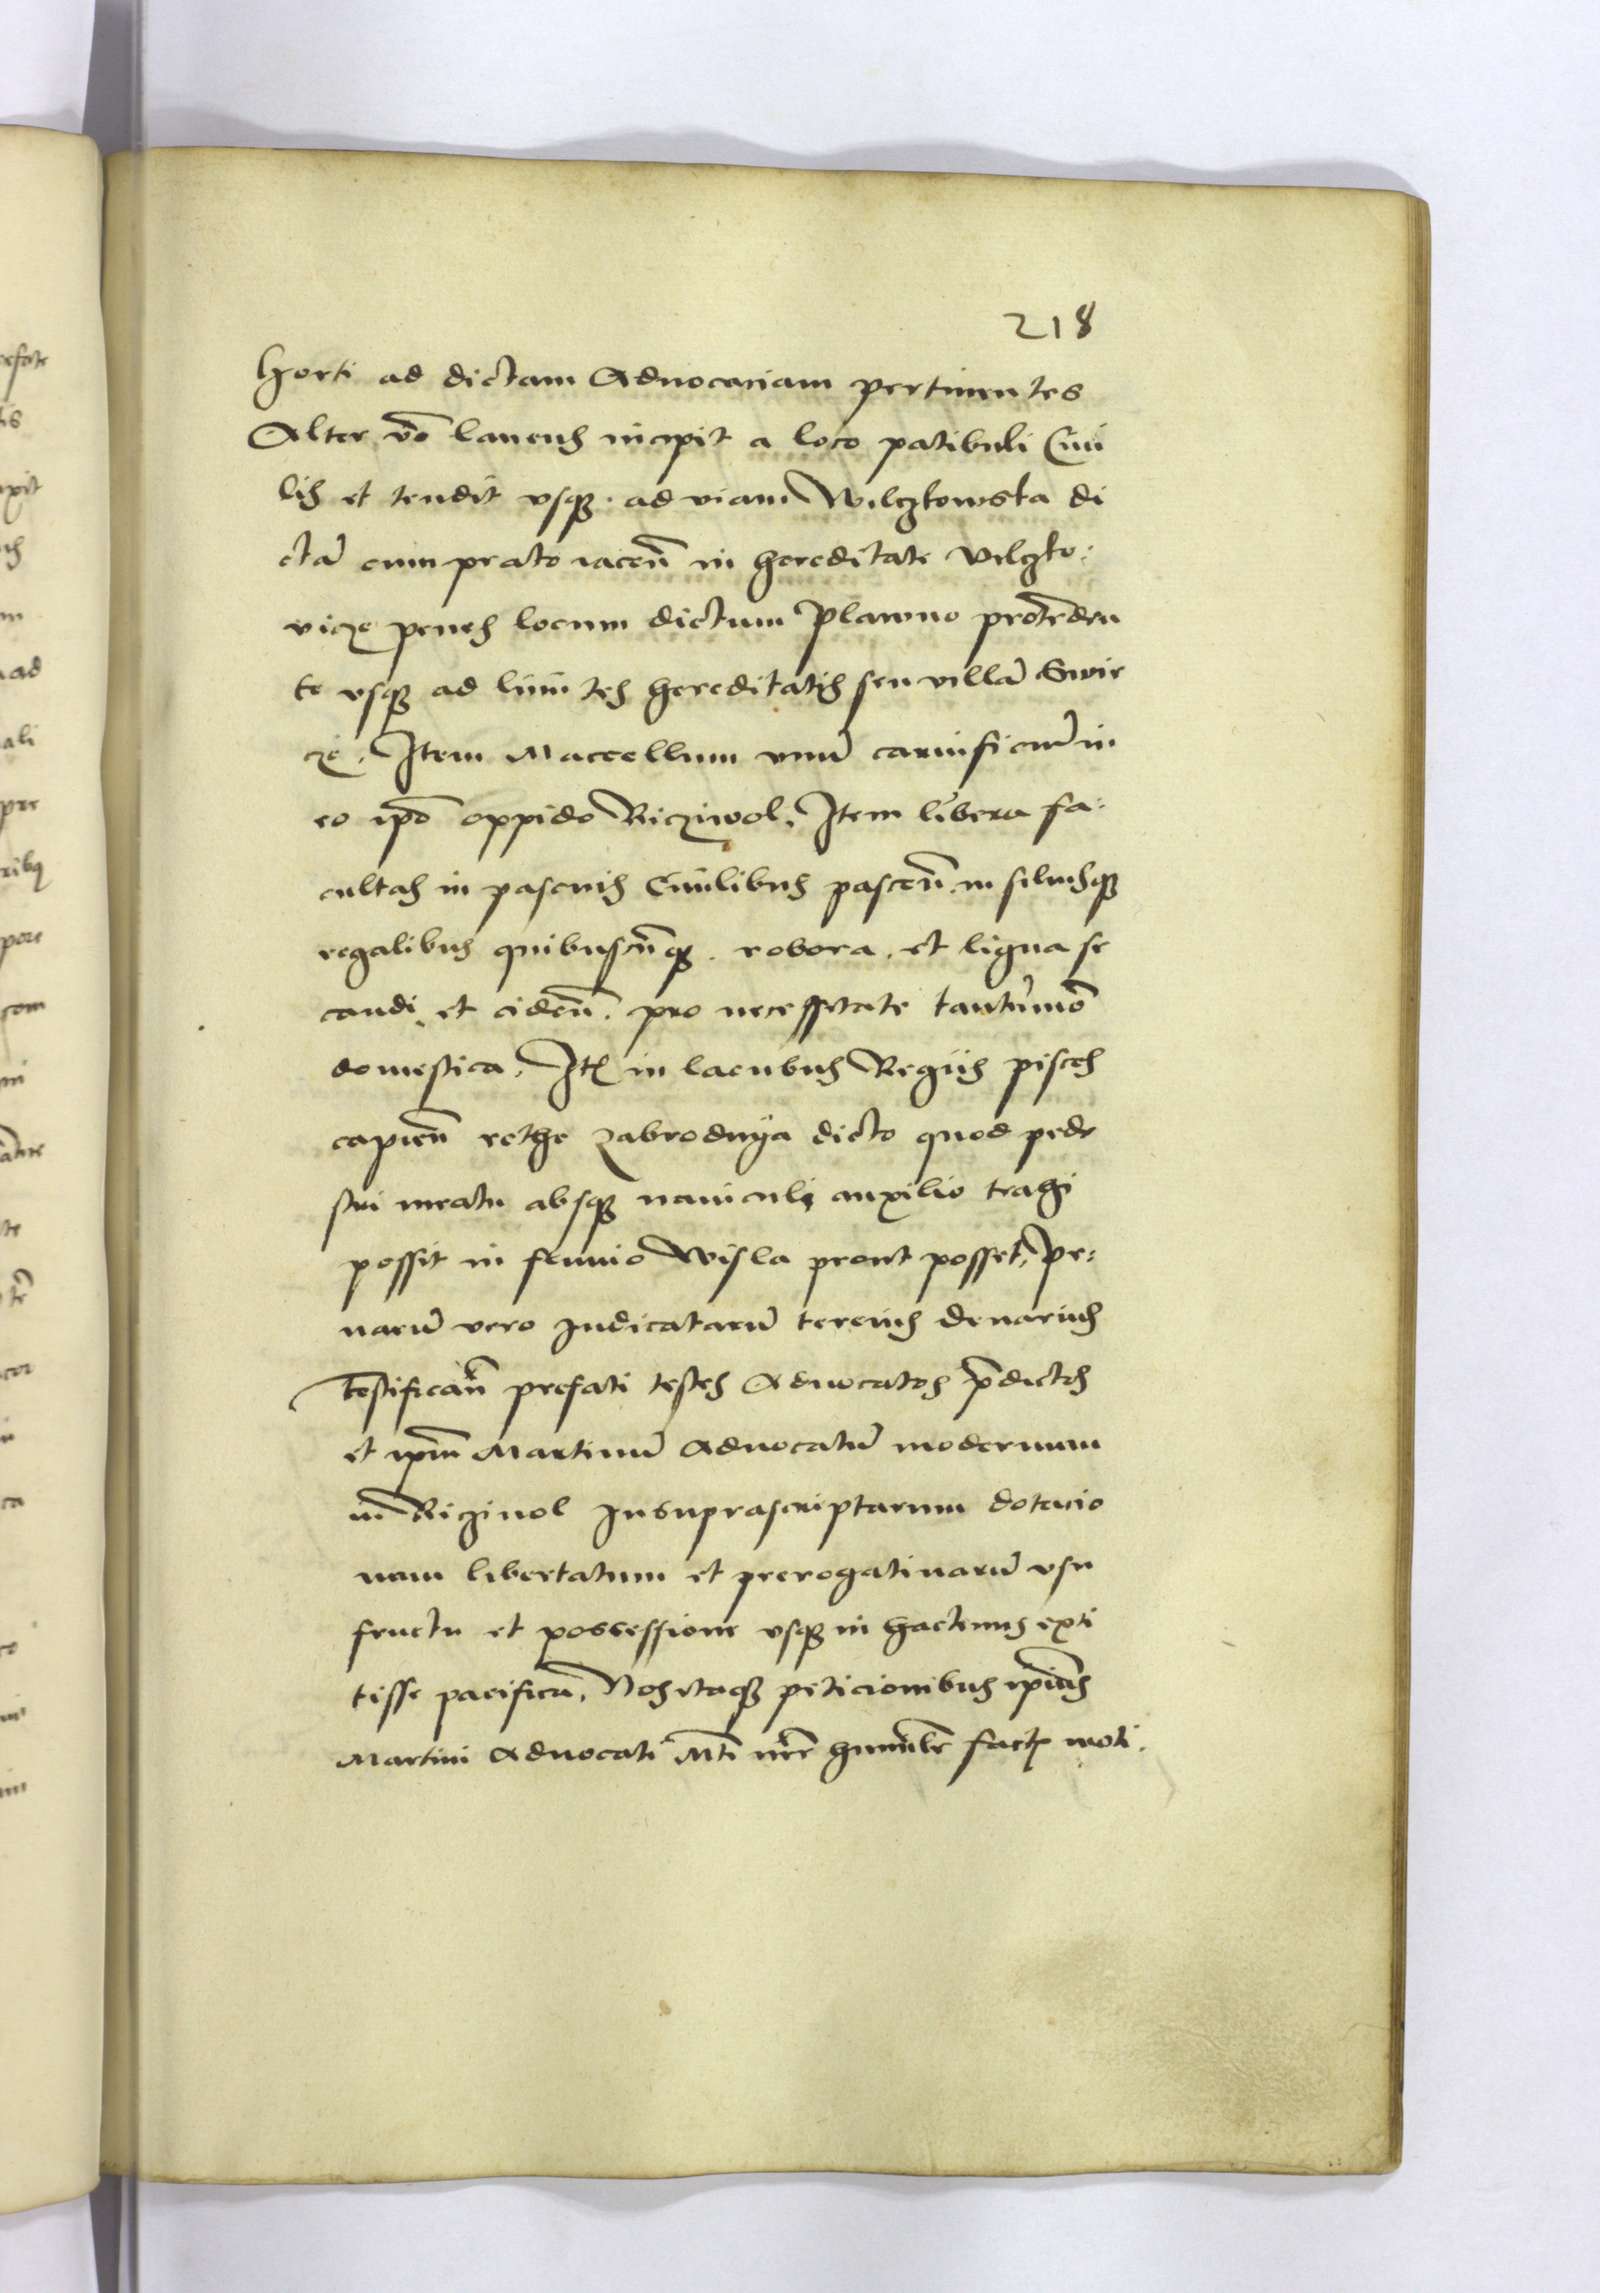 218
horti ad dictam Advocaciam pertinentes
Alter vo͞ laneus incipit a loco patibuli Ciui
lis et tendit vsqꝫ ad viam Wilczkowska di
cta͞ cum prato iacen͞ in hereditate Vilczko:
vicze penes locum dictum Plawno protenden
te vsqꝫ ad limites hereditatis seu villa͞ Swir
cze. Item Maccellum vnu͞ carnificu͞ in
eo ip͞o oppido Ricziwol, Item libera fa:
cultas in pascuis Ciuilibus pascen͞ in siluisqꝫ
regalibus quibuscu͞qꝫ robora et ligna se
candi et ciden͞. pro necessitate tantu͞mo͞
domestica, Itꝫ in lacubus Regiis pisces
capien͞ rethe zabrodnÿa dicto quod pede
stri meatu absqꝫ nauiculę auxilio trahi
possit in fluuio Wisla prout posset, Pe:
naru͞ vero Iudicataru͞ tercius denarius
Testifican͞ prefati testes Aduocatos p͞dictos
et ip͞m Martinu͞ Aduocatu͞ modernum
in Riciuol In suprascriptarum dotacio
num libertatum et prerogatiuaru͞ vsu
fructu et possessione vsqꝫ in hactenus exti
tisse pacifica, Nos itaqꝫ peticionibus
Martini Aduocati M͞ti n͞re humil͞r factꝭ moti.